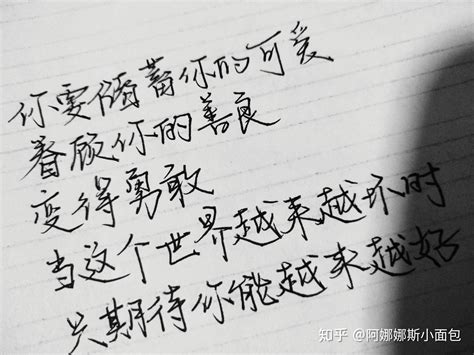 你要储蓄你的可爱
眷顾你的善良
变得勇敢
当这个世界越来越坏时
只期待你能越来越好
知乎 @阿娜娜斯小面包